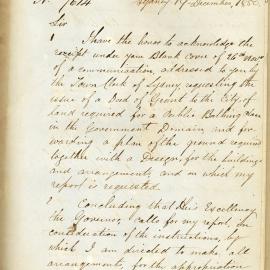 No. 7614 Sydney 19 December, 1850.
Sir
I have the honor to acknowledge the
receipt under your Blank cover of 26th
of a communication addressed to you by
the Town Clerk of Sydney requesting the
issue of a Deed of Grant to the City, of
land required for a Public Bathing Place
in the Government Domain, and for-
warding a plan of the ground required
together with a Design for the buildings
and arrangements, and on which my
report is requested.
2 Concluding that His Excellency
the Governor, calls for my report, in
consideration of the instructions, by
which I am directed to make, all
arrangements, for the appropriation